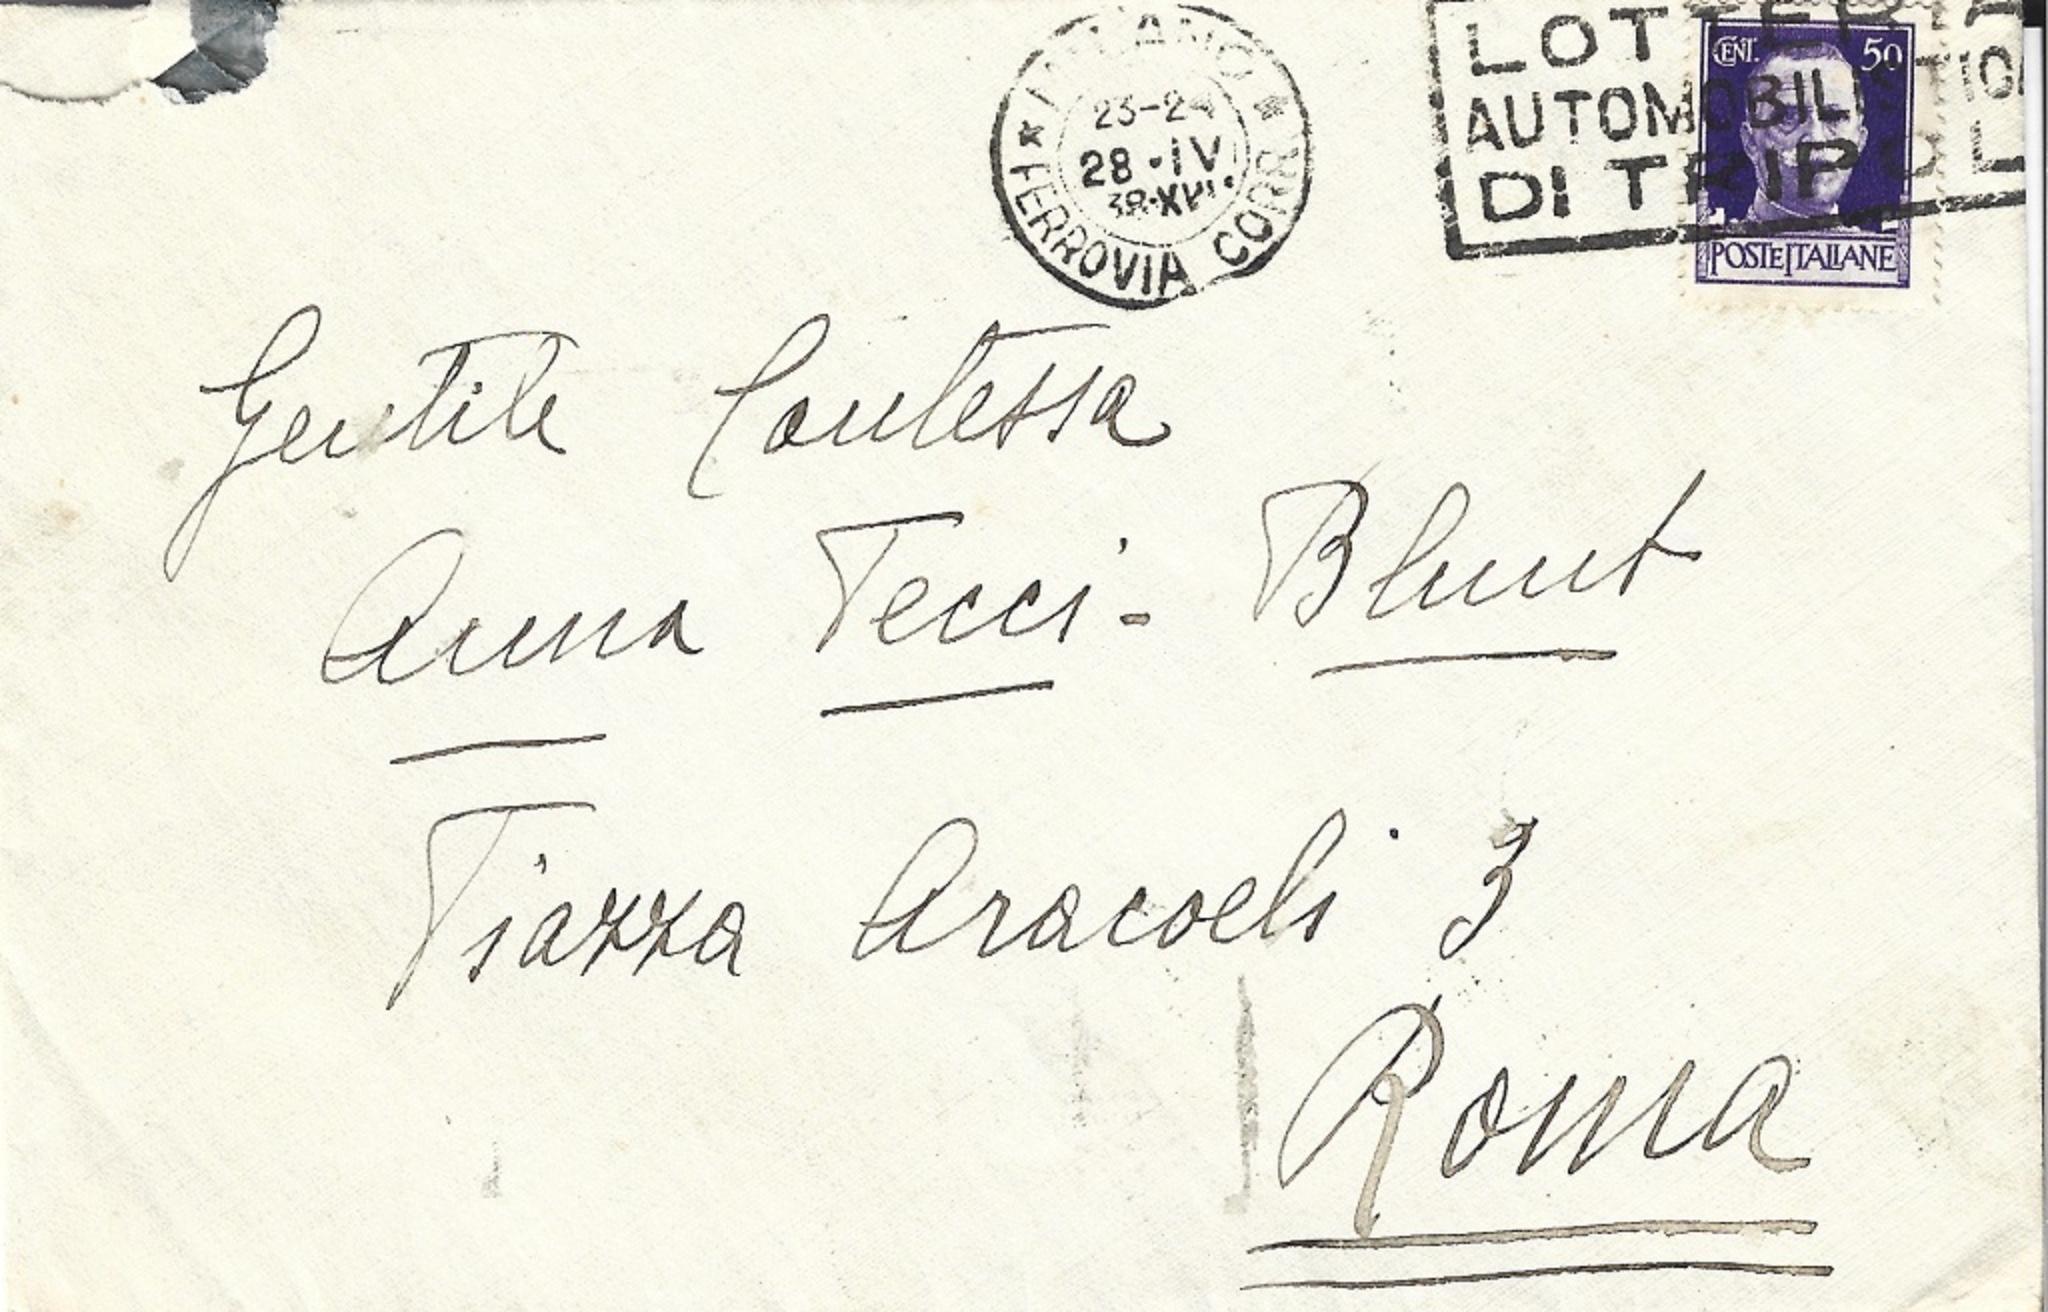 MILANO
23-24
28·IV
38·XVI·
FERROVIA CORR
LOTTERIA
AUTOMOBILISTICA
DI TRIPOLI
CENT. 50
POSTE ITALIANE
Gentile Contessa
Anna Pecci-Blunt
Piazza Aracoeli 3
Roma